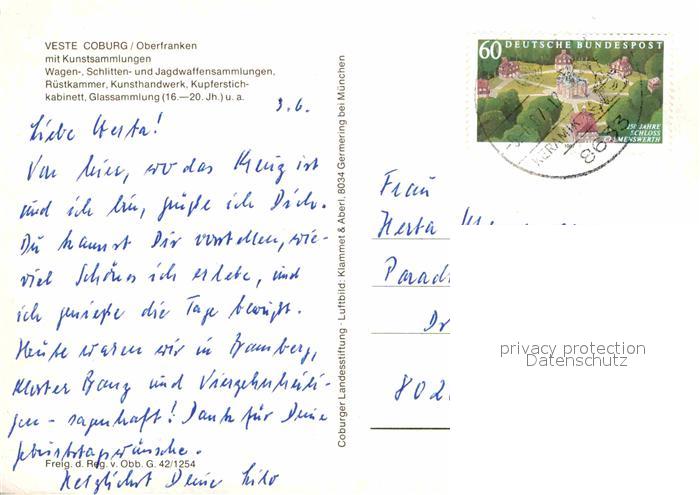 VESTE COBURG / Oberfranken
mit Kunstsammlungen
Wagen-, Schlitten- und Jagdwaffensammlungen,
Rüstkammer, Kunsthandwerk, Kupferstich-
kabinett, Glassammlung (16.—20. Jh.) u. a.
3.6.
Liebe Herta!
Von hier, wo das Kreuz ist
und ich bin, grüße ich Dich.
Du kannst Dir vorstellen, wie-
viel Schönes ich erlebe, und
ich genieße die Tage bewußt.
Heute waren wir in Bamberg,
Kloster Banz und Vierzehnheili-
gen - sagenhaft! Dank für Deine
Geburtstagswünsche.
Herzlichst Deine
Freig. d. Reg. v. Obb. G. 42/1254
Coburger Landesstiftung · Luftbild: Klammet & Aberl, 8034 Germering bei München
60 DEUTSCHE BUNDESPOST
250 JAHRE
SCHLOSS
CLEMENSWERTH
KERAMIK
8633
Frau
Herta
Parad
Dr
802
privacy protection
Datenschutz